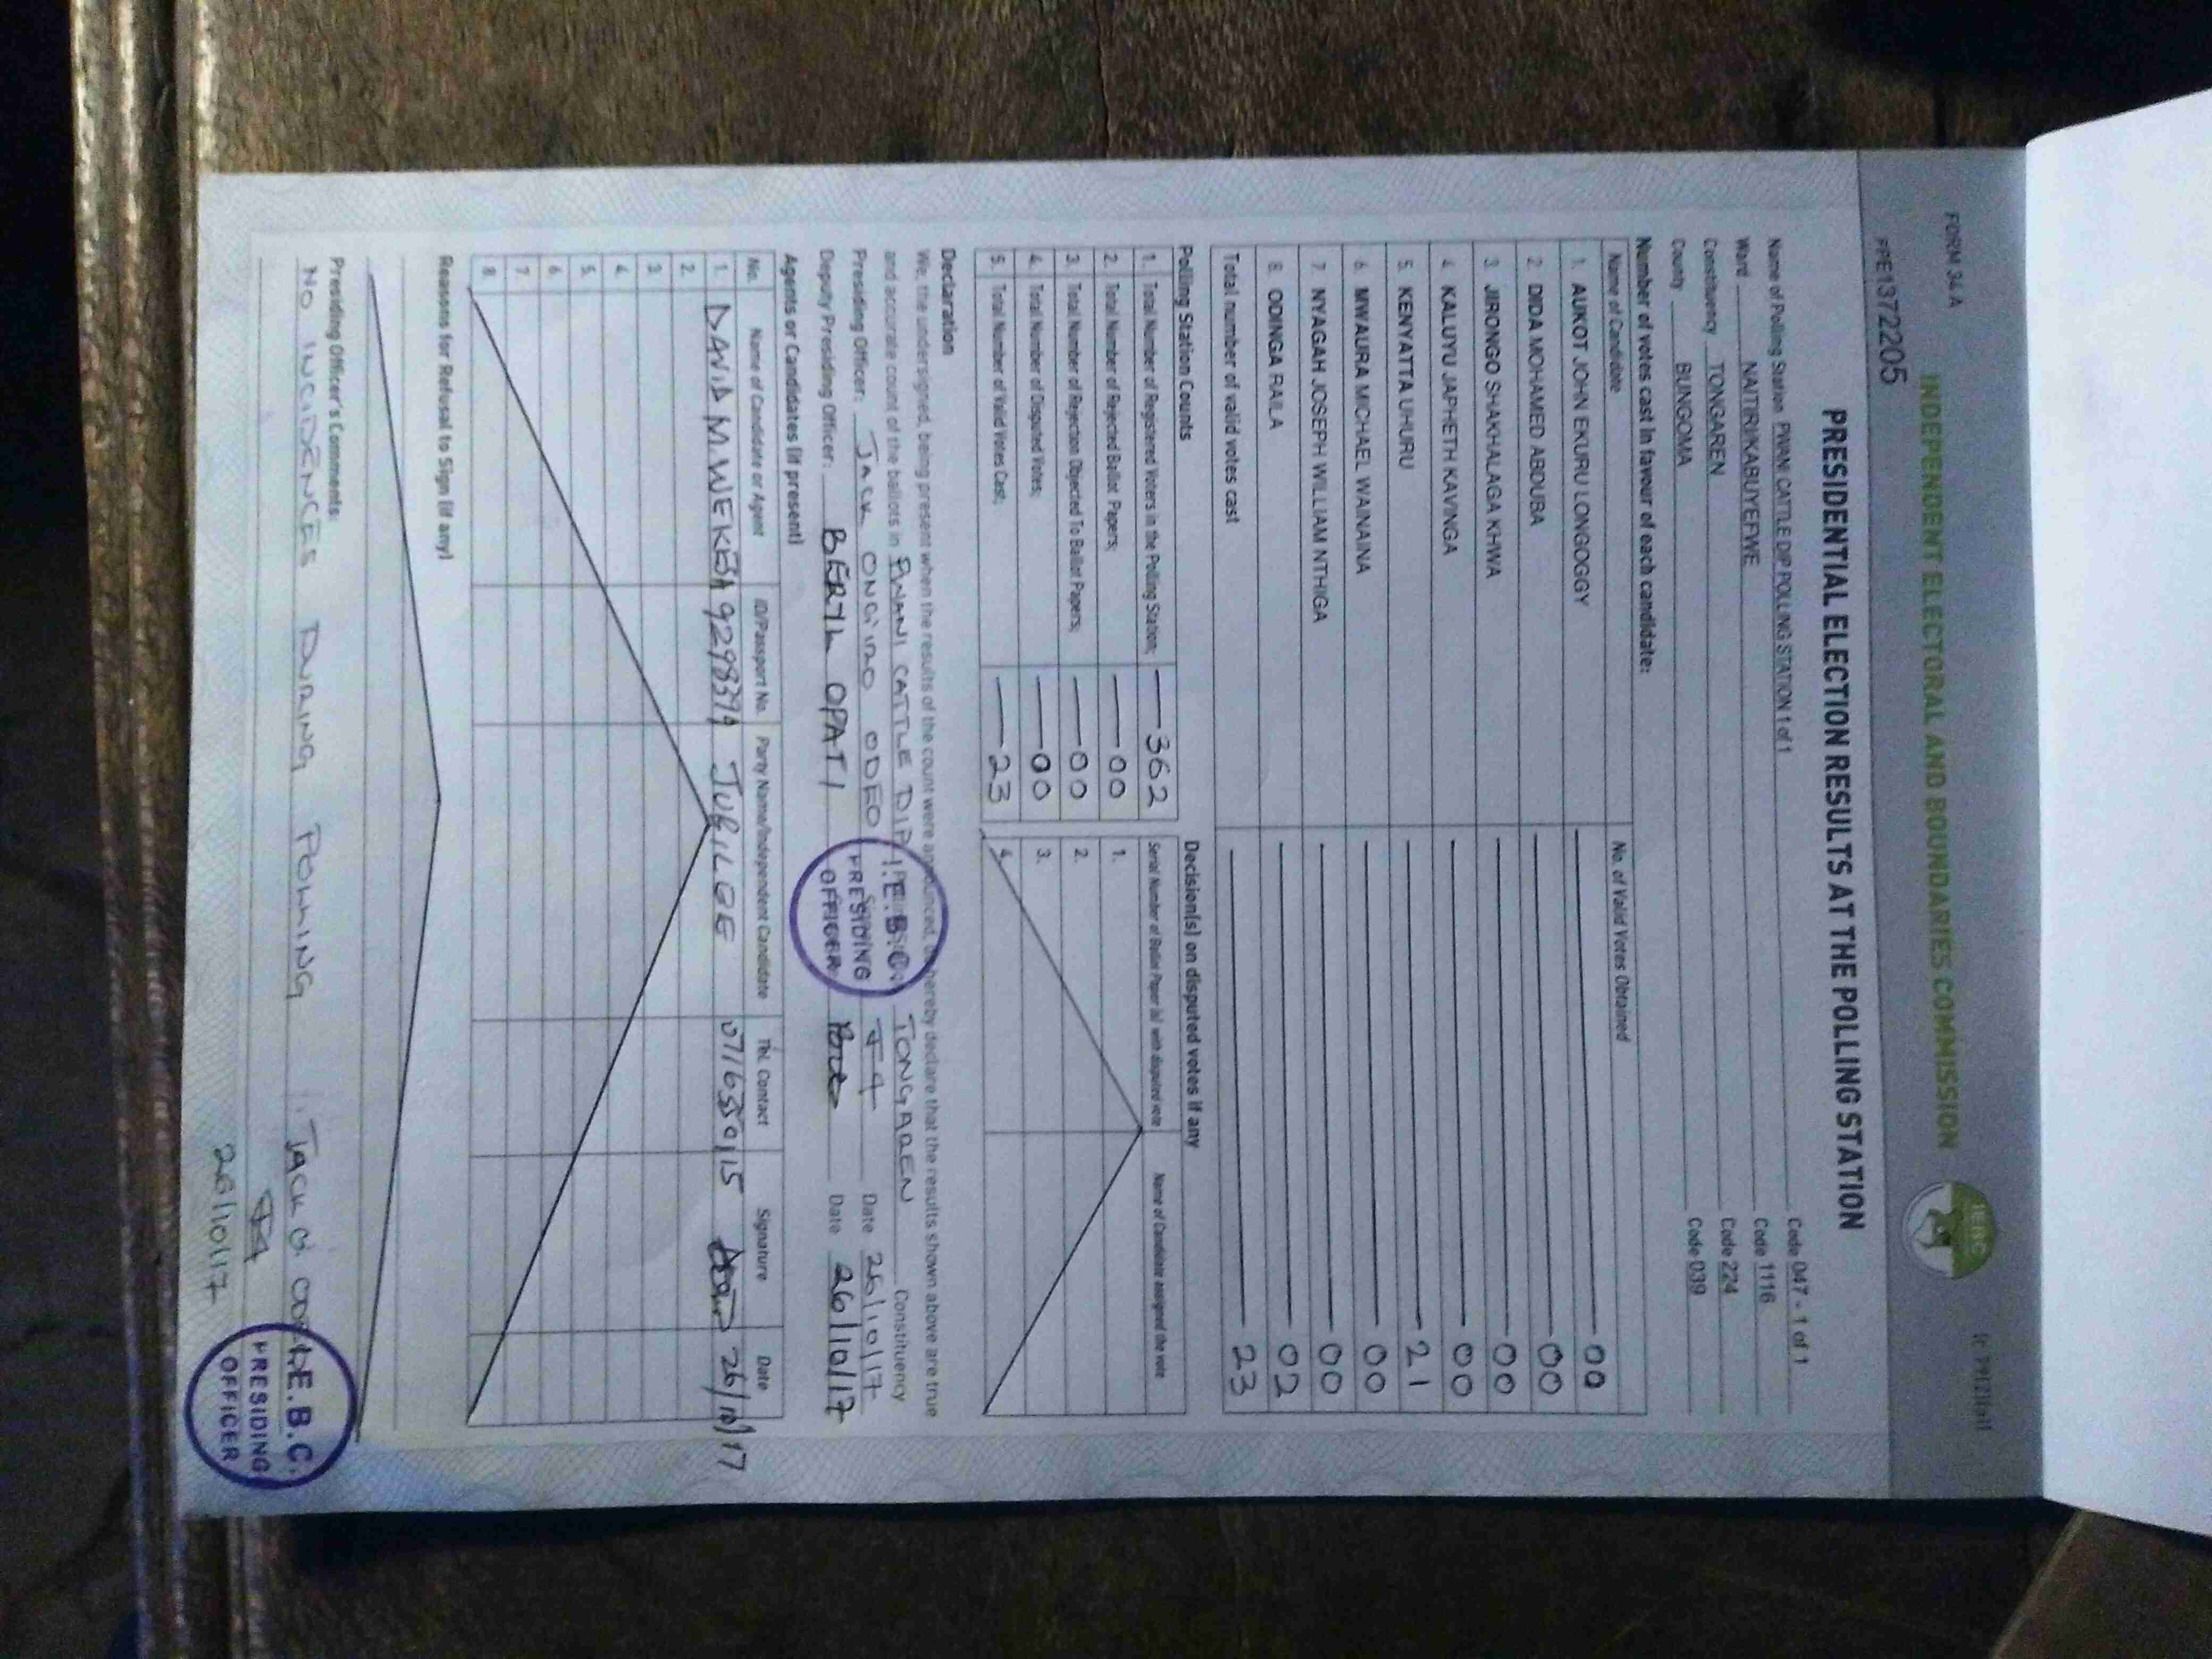 FORM 34 A
INDEPENDENT ELECTORAL AND BOUNDARIES COMMISSION
IEBC
PPE1372205
PRESIDENTIAL ELECTION RESULTS AT THE POLLING STATION
Name of Polling Station PWANI CATTLE DIP POLLING STATION 1 of 1 Code 047 - 1 of 1
Ward NAITIRI/KABUYEFWE Code 1116
Constituency TONGAREN Code 224
County BUNGOMA Code 039
Number of votes cast in favour of each candidate:
Name of Candidate No. of Valid Votes Obtained
1. AUKOT JOHN EKURU LONGOGGY 00
2. DIDA MOHAMED ABDUBA 00
3. JIRONGO SHAKHALAGA KHWA 00
4. KALUYU JAPHETH KAVINGA 00
5. KENYATTA UHURU 21
6. MWAURA MICHAEL WAINAINA 00
7. NYAGAH JOSEPH WILLIAM NTHIGA 00
8. ODINGA RAILA 02
Total number of valid votes cast 23
Polling Station Counts
1. Total Number of Registered Voters in the Polling Station; 362
2. Total Number of Rejected Ballot Papers; 00
3. Total Number of Rejection Objected To Ballot Papers; 00
4. Total Number of Disputed Votes; 00
5. Total Number of Valid Votes Cast; 23
Decision(s) on disputed votes if any
Serial Number of Ballot Paper (s) with disputed vote Name of Candidate assigned the vote
1.
2.
3.
4.
Declaration
We, the undersigned, being present when the results of the count were announced, do hereby declare that the results shown above are true
and accurate count of the ballots in PWANI CATTLE DIP TONGAREN Constituency
Presiding Officer: JACK ONGINJO ODEO Date 26/10/17
Deputy Presiding Officer: BERYL OPATI Date 26/10/17
I.E.B.C.
PRESIDING
OFFICER
Agents or Candidates (if present)
No. Name of Candidate or Agent ID/Passport No. Party Name/Independent Candidate Tel. Contact Signature Date
1. DAVID M. WEKESA JUBILEE 26/10/17
2.
3.
4.
5.
6.
7.
8.
Reasons for Refusal to Sign (if any)
Presiding Officer's Comments:
NO INCIDENCES DURING POLLING JACK O.
26/10/17
I.E.B.C.
PRESIDING
OFFICER